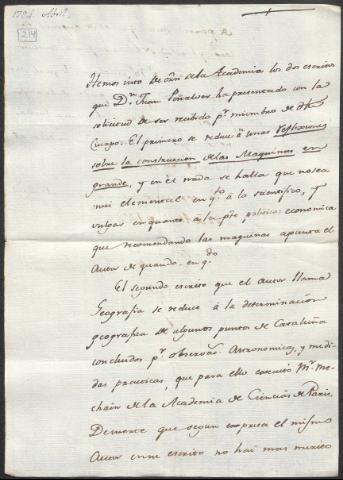 1794. Abril.
214
Hemos visto de orn. de la Academia los dos escritos
que Dn. Juan Peñalver ha presentado con la
solicitud de ser recibido pr. miembro de dho.
Cuerpo. El primero se reduce à unas reflexiones
sobre la construccion de las Maquinas en
grande, y en él nada se halla que no sea
mui elemental en qto. à la scientifico, y
vulgar en quanto à la pte. politico economica
que recomendando las maquinas apunta el
Autor de quando en qdo.
El segundo escrito que el autor llama
Geografia se reduce à la determinacion
geografica de algunos puntos de Cataluña
concluidos pr. observaos. Astronomicas, y medi-
das practicas, que para ello executó Mr. Me-
chain de la Academia de Ciencias de Paris.
De suerte que segun expresa el mismo
Autor en su escrito no hai mas merito